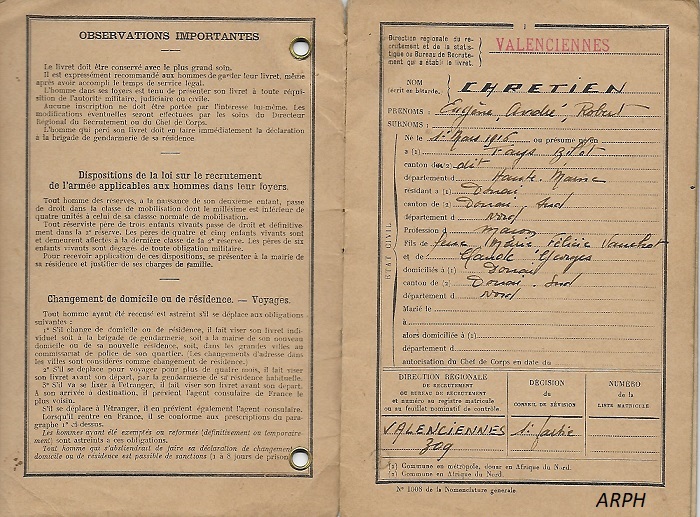 OBSERVATIONS IMPORTANTES
Le livret doit être conservé avec le plus grand soin.
Il est expressément recommandé aux hommes de garder leur livret, même
après avoir accompli le temps de service légal.
L'homme dans ses foyers est tenu de présenter son livret à toute réqui-
sition de l'autorité militaire, judiciaire ou civile.
Aucune inscription ne doit être portée par l'intéressé lui-même. Les
modifications éventuelles seront effectuées par les soins du Directeur
Régional du Recrutement ou du Chef de Corps.
L'homme qui perd son livret doit en faire immédiatement la déclaration
à la brigade de gendarmerie de sa résidence.
Dispositions de la loi sur le recrutement
de l'armée applicables aux hommes dans leur foyers.
Tout homme des réserves, à la naissance de son deuxième enfant, passe
de droit dans la classe de mobilisation dont le millésime est inférieur de
quatre unités à celui de sa classe normale de mobilisation.
Tout réserviste père de trois enfants vivants passe de droit et définitive-
ment dans la 2e réserve. Les pères de quatre et cinq enfants vivants sont
et demeurent affectés à la dernière classe de la 2e réserve. Les pères de six
enfants vivants sont dégagés de toute obligation militaire.
Pour recevoir application de ces dispositions, se présenter à la mairie
de sa résidence et justifier de ses charges de famille.
Changement de domicile ou de résidence. — Voyages.
Tout homme ayant été recensé est astreint s'il se déplace aux obligations
suivantes :
1° S'il change de domicile ou de résidence, il fait viser son livret indi-
viduel soit à la brigade de gendarmerie, soit à la mairie de son nouveau
domicile ou de sa nouvelle résidence, soit, dans les grandes villes au
commissariat de police de son quartier. (Les changements d'adresse dans
les villes sont considérés comme changement de résidence.)
2° S'il se déplace pour voyager pour plus de quatre mois, il fait viser
son livret avant son départ, par la gendarmerie de sa résidence habituelle.
3° S'il va se fixer à l'étranger, il fait viser son livret avant son départ.
A son arrivée à destination, il prévient l'agent consulaire de France le
plus voisin.
S'il se déplace à l'étranger, il en prévient également l'agent consulaire.
Lorsqu'il rentre en France, il se conforme aux prescriptions du para-
graphe 1° ci-dessus.
Les hommes ayant été exemptés ou réformés (définitivement ou temporaire-
ment) sont astreints a ces obligations.
Tout homme qui s'abstiendrait de faire sa déclaration de changement
domicile ou de résidence est passible de sanctions (1 à 8 jours de prison
1
Direction régionale du re-
crutement et de la statis-
tique ou Bureau de Recrute-
ment qui a établi le livret.
VALENCIENNES
NOM
(écrit en bâtarde).
CHRETIEN
PRENOMS : Eugène, André, Robert
SURNOMS :
Né le 1er Mars 1916 ou présumé né en
à (1)
canton de (2) dit
département d Haute-Marne
résidant à (1) Douai
canton de (2) Douai-Sud
département d Nord
Profession d maçon
Fils de feue Marie Félicie
et de Georges
domiciliés à (1) Douai
canton de (2) Douai-Sud
département d Nord
Marié le
à
alors domiciliée à (1)
département d
autorisation du Chef de Corps en date du
ETAT CIVIL
DIRECTION RÉGIONALE
DE RECRUTEMENT
OU BUREAU DE RECRUTEMENT
et numéro au registre matricule
ou au feuillet nominatif de contrôle.
DÉCISION
du
CONSEIL DE RÉVISION
NUMÉRO
de la
LISTE MATRICULE
VALENCIENNES
309
1e partie
(1) Commune en métropole, douar en Afrique du Nord.
(2) Commune en Afrique du Nord.
N° 1008 de la Nomenclature generale
ARPH